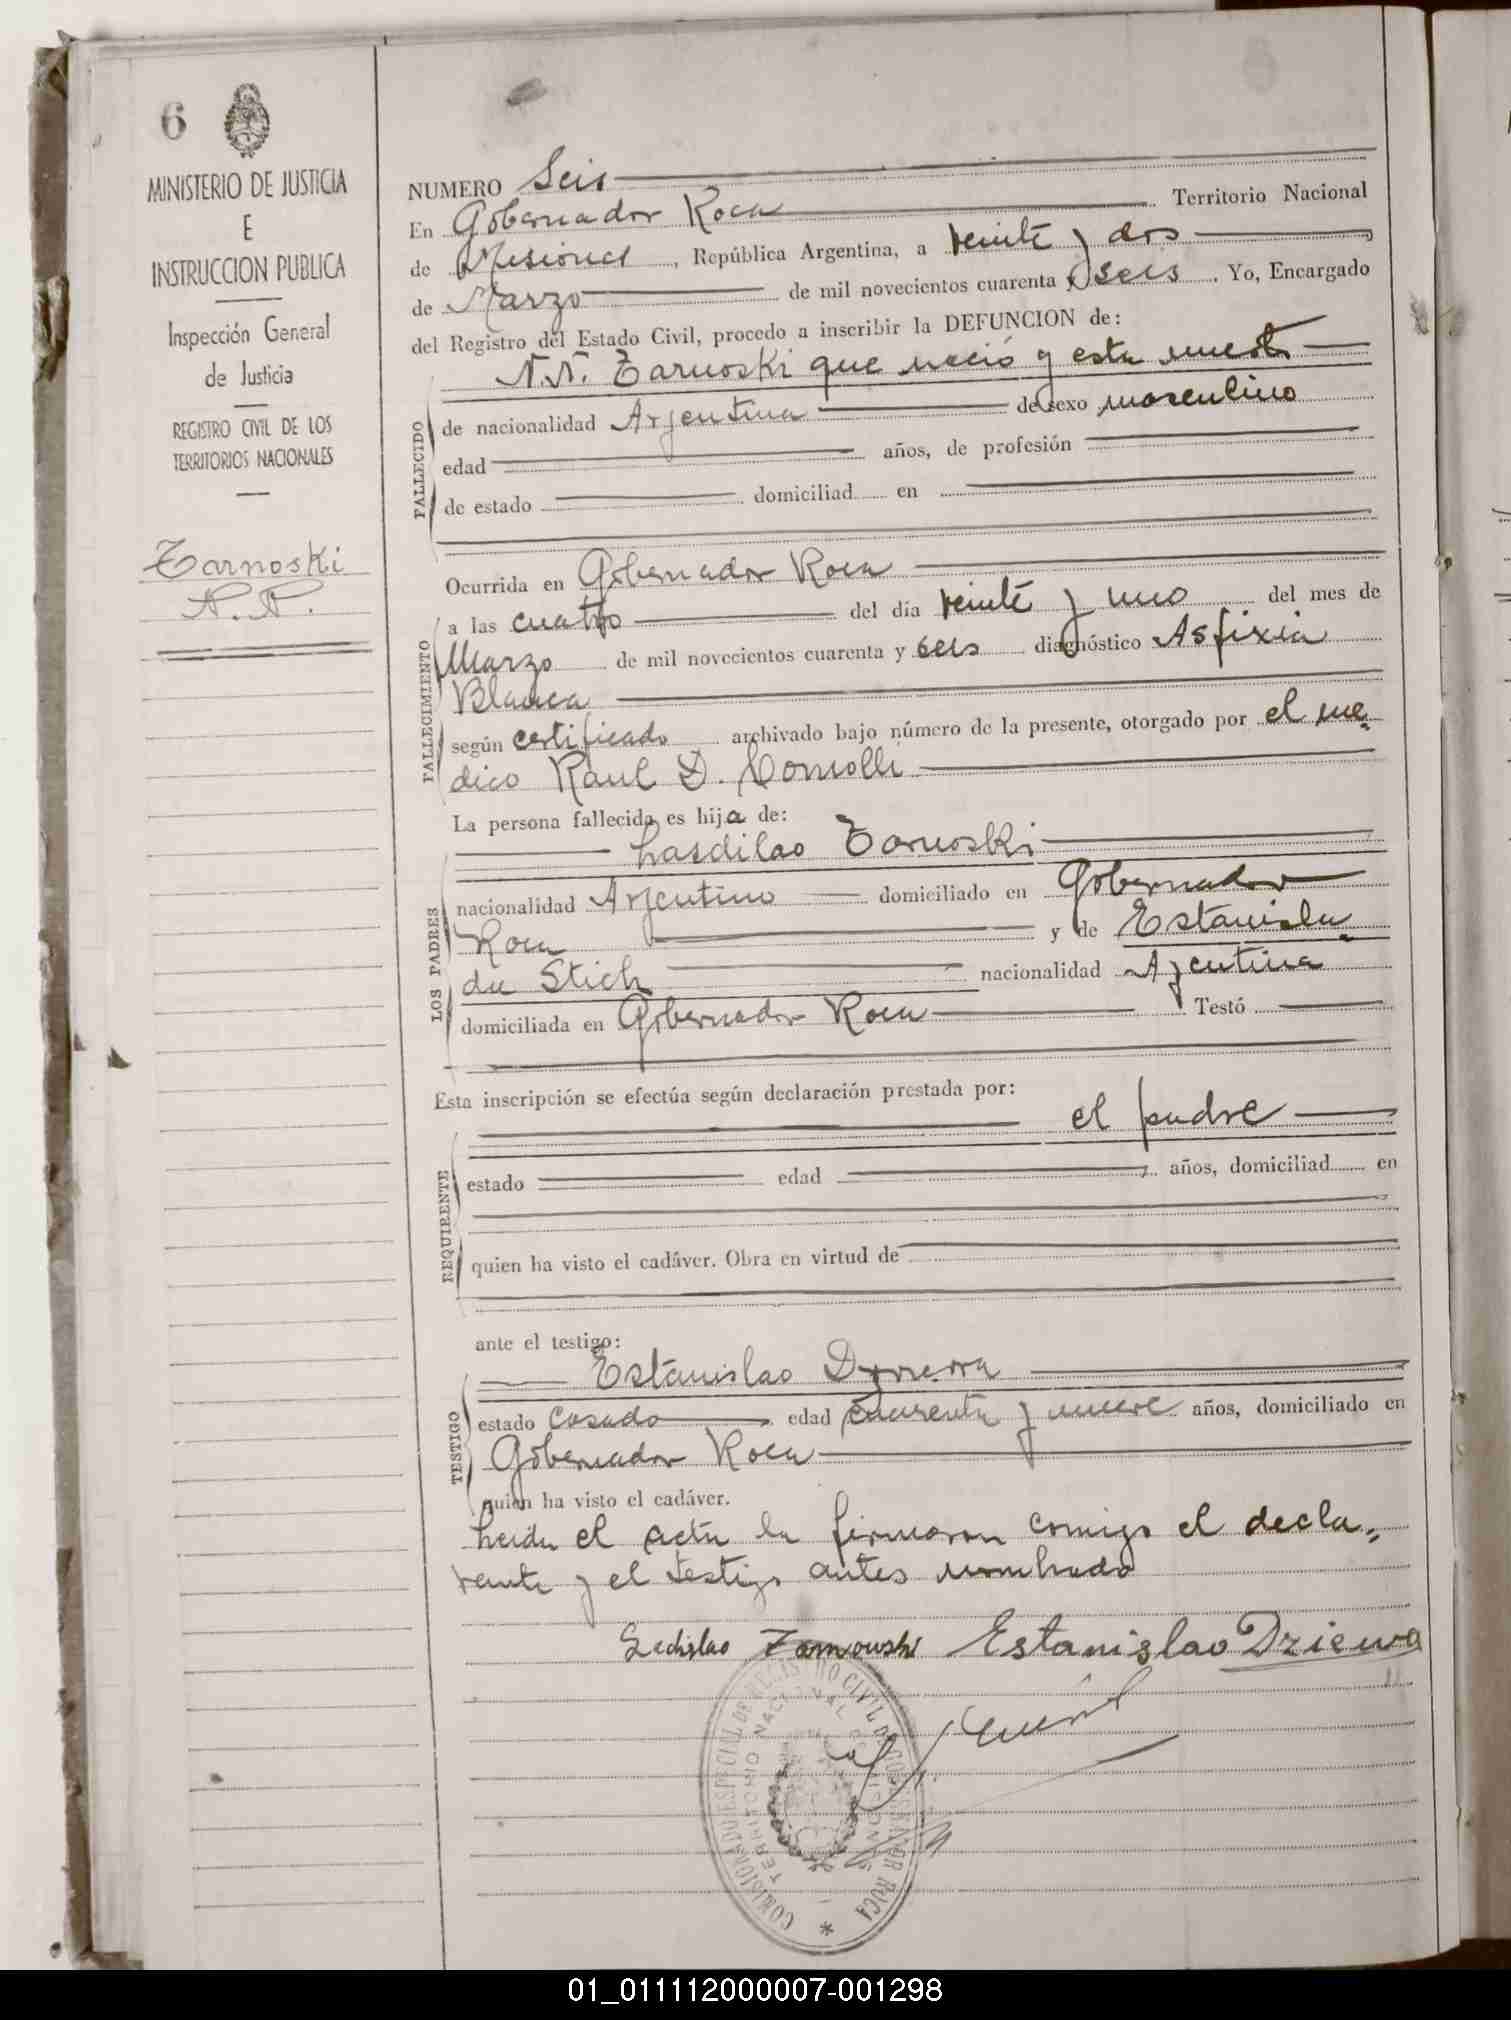 6
MINISTERIO DE JUSTICIA
E
INSTRUCCION PUBLICA
Inspección General
de Justicia
REGISTRO CIVIL DE LOS
TERRITORIOS NACIONALES
Tarnoski
N.N.
NUMERO Seis
En Gobernador Roca Territorio Nacional
de Misiones, República Argentina, a veinte y dos
de Marzo de mil novecientos cuarenta y seis. Yo, Encargado
del Registro del Estado Civil, procedo a inscribir la DEFUNCION de:
N.N. Tarnoski que nació y esta muerto
FALLECIDO
de nacionalidad Argentina de sexo masculino
edad años, de profesión
de estado domiciliad en
Ocurrida en Gobernador Roca
FALLECIMIENTO
a las cuatro del día veinte y uno del mes de
Marzo de mil novecientos cuarenta y seis diagnóstico Asfixia
Blanca
según certificado archivado bajo número de la presente, otorgado por el me-
dico Raul D. Comolli
La persona fallecida es hija de:
LOS PADRES
Lasdilao Tarnoski
nacionalidad Argentino domiciliado en Gobernador
Roca y de Estanisla-
da Stich nacionalidad Argentina
domiciliada en Gobernador Roca Testó
Esta inscripción se efectúa según declaración prestada por:
REQUIRENTE
el padre
estado edad años, domiciliad en
quien ha visto el cadáver. Obra en virtud de
ante el testigo:
TESTIGO
Estanislao
estado casado edad cuarenta y nueve años, domiciliado en
Gobernador Roca
quien ha visto el cadáver.
Leida el acta la firmaron comigo el decla-
rante y el testigo antes nombrado
Ladislao Estanislao Dziewa
COMISION ESPECIAL DE REGISTRO CIVIL DE GOBERNADOR ROCA
TERRITORIO NACIONAL DE MISIONES
01_011112000007-001298